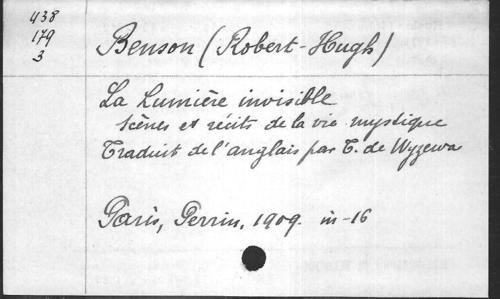 438
179
3
Benson (Robert-Hugh)
La Lumière invisible
Scènes et récits de la vie mystique
Traduit de l'anglais par T. de Wyzewa
Paris, Perrin, 1909. in-16